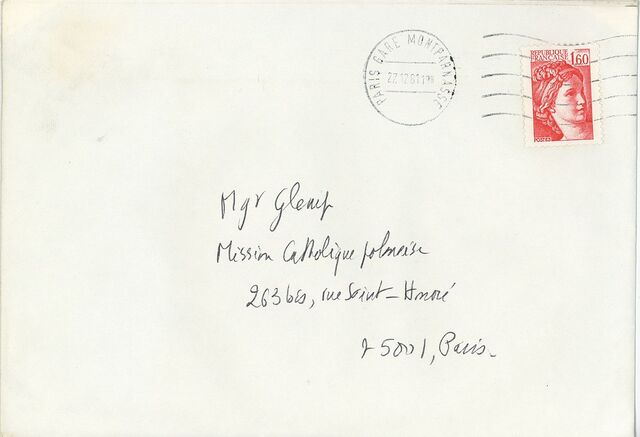 PARIS GARE MONTPARNASSE
22.12.81
REPUBLIQUE
FRANCAISE 1,60
Mgr Glemp
Mission Catholique polonaise
263 bis, rue Saint-Honoré
75001, Paris.